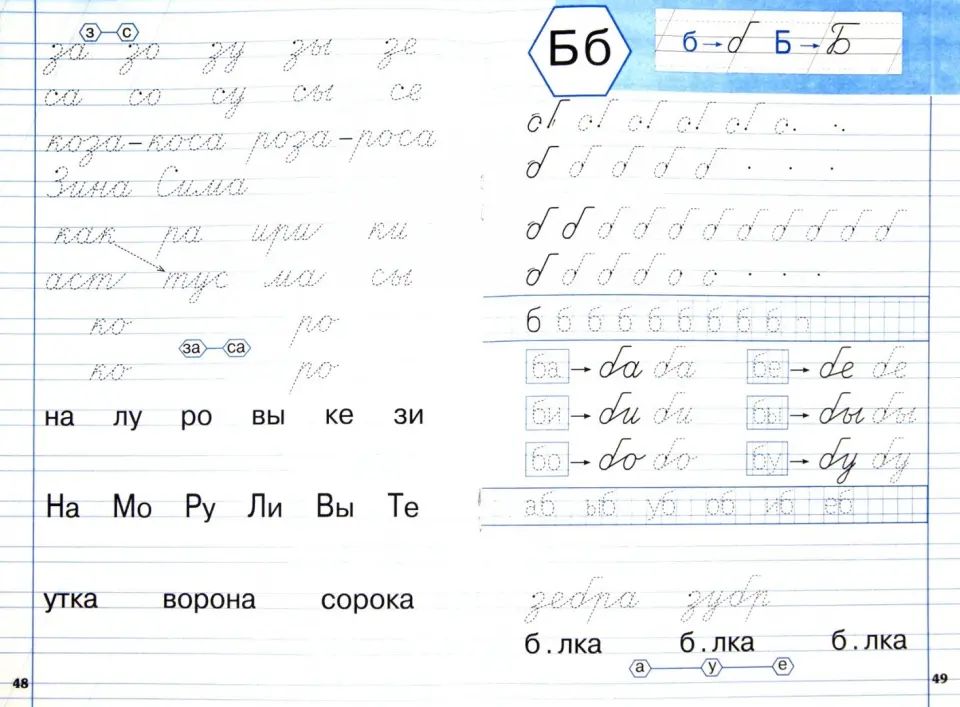 з с
за зо зу зы зе
са со су сы се
коза-коса роза-роса
Зина Сима
как ра ири ки
аст тус ма сы
ко ро
за са
ко ро
на лу ро вы ке зи
На Мо Ру Ли Вы Те
утка ворона сорока
48
Бб
б б Б Б
б б б б б
б б б б б б б б б б б
б б б б
б б б б б б б б б
ба ба ба бе бе бе
би би би бы бы бы
бо бо бо бу бу бу
аб ыб уб об иб еб
зебра зубр
б.лка б.лка б.лка
а у е
49